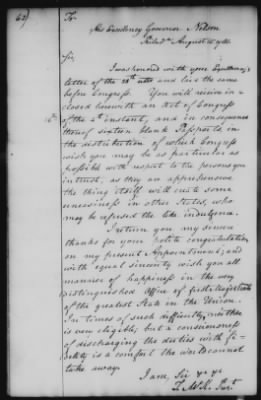 To
His Excellency Governor Nelson
Philada August 10 1781.
Sir,
I was honored with your Excellency's
letter of the 28th ulto and laid the same
before Congress. You will receive in-
closed herewith an Act of Congress
of the instant, and in consequence
thereof sixteen blank Passports in
the distribution of which Congress
wish you may be as particular as
possible with respect to the persons you
intrust, as they are apprehensive
the thing itself will create some
uneasiness in other States, who
may be refused the like indulgence.
I return you my sincere
thanks for your polite congratulation
on my present Appointment; and
with equal sincerity wish you all
manner of happiness in the very
distinguished office of first Magistrate
of the greatest State in the Union.
In times of such difficulty, neither
is very eligible; but a consciousness
of discharging the duties with fi-
delity is a comfort the world cannot
take away.
I am, Sir &c &c
T. M:K. Prest.